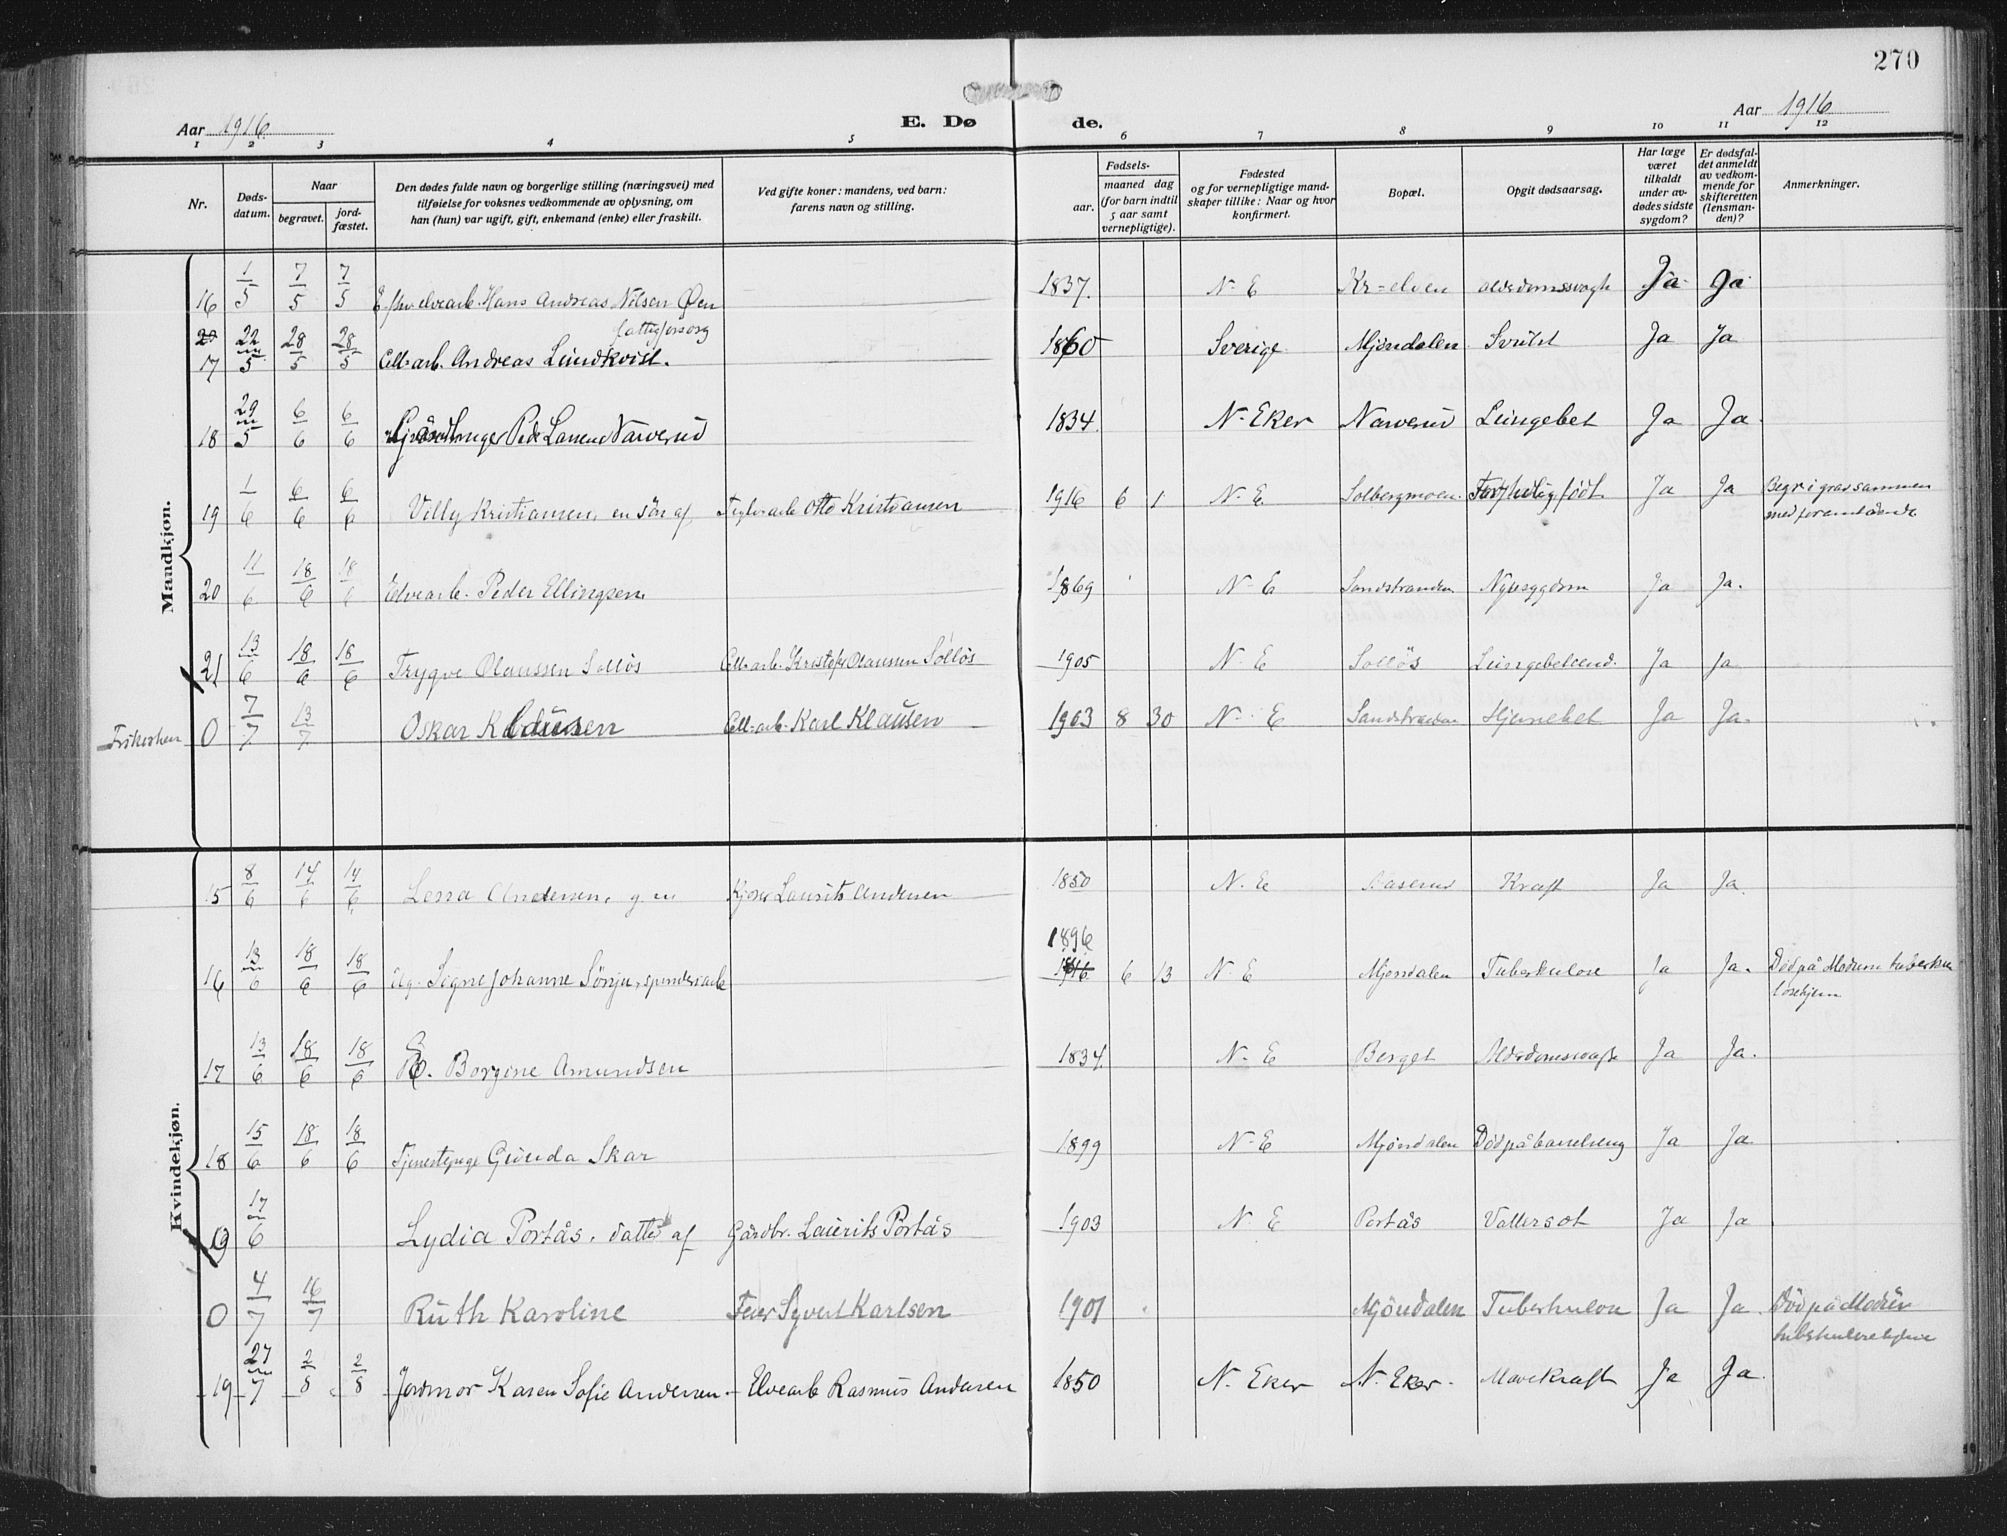 270
Aar 1916
E. Dø
de.
Aar 1916
1 2 3 4 5 6 7 8 9 10 11 12
Nr.
Døds-
datum.
Naar
begravet.
jord-
fæstet.
Den dødes fulde navn og borgerlige stilling (næringsvei) med
tilføielse for voksnes vedkommende av oplysning, om
han (hun) var ugift, gift, enkemand (enke) eller fraskilt.
Ved gifte koner: mandens, ved barn:
farens navn og stilling.
Fødsels-
aar.
maaned dag
(for barn indtil
5 aar samt
vernepligtige).
Fødested
og for vernepligtige mand-
skaper tillike: Naar og hvor
konfirmert.
Bopæl.
Opgit dødsaarsag.
Har læge
været
tilkaldt
under av-
dødes sidste
sygdom?
Er dødsfal-
det anmeldt
av vedkom-
mende for
skifteretten
(lensman-
den)?
Anmerkninger.
Mandkjøn.
16 1/5 7/5 7/5 elvearb. Hans Andreas Nilsen Øen 1837. N-E Kr-elven Ja Ja
fattigforsorg
17 22/5 28/5 28/5 Cell-arb. Andreas Lundkvist. 1860 Sverige Mjöndalen Svulst Ja Ja
18 29/5 6/6 6/6 Narverud 1834. N-Eker Narverud Lungebet Ja Ja.
19 1/6 6/6 6/6 Villy Kristiansen, en sön af Otto Kristiansen 1916 6 1 N-E Solbergmoen. födt Ja Ja Begr i grav sammen
med foranstående
20 11/6 18/6 18/6 Elvearb. Peder Ellingsen 1869 N-E Sandstranden Nyresygdom Ja Ja.
21 13/6 18/6 18/6 Trygve Olaussen Solløs Cell-arb. Kristofer Olaussen Solløs 1905 N-E Solløs Ja Ja
Frikirken 0 7/7 13/7 Oskar Klausen Cell-arb. Karl Klausen 1903 8 30 N-E Sandstranden Hjernebet Ja Ja.
Kvindekjøn.
15 8/6 14/6 14/6 Lena Andersen, g.m. Kjører Laurits Andersen 1850 N.E Kræft Ja Ja.
16 13/6 18/6 18/6 Ug. Signe Johanne 1896 1916 6 13 N-E Mjöndalen Tuberkulose Ja Ja. Död på Modum tuberku
losehjem
17 13/6 18/6 18/6 E. Borgine Amundsen 1834. N-E Berget Alderdomssvagh Ja Ja.
18 15/6 18/6 18/6 Tjenestepige Gunda Skar 1899 N-E Mjöndalen Död på barselseng Ja Ja
0 17/6 Lydia Portås, datter af Gårdbr. Laurits Portås 1903 N-E Portås Vattersot Ja Ja
0 4/7 16/7 Ruth Karoline Feier Syvert Karlsen 1901 Mjöndalen Tuberkulose Ja Ja. Död på Modum
tuberkulosehjem
19 27/7 2/8 2/8 Jordmor Karen Sofie Andersen - Elvearb Rasmus Andersen 1850 N. Eker N. Eker. Mavekræft Ja Ja.